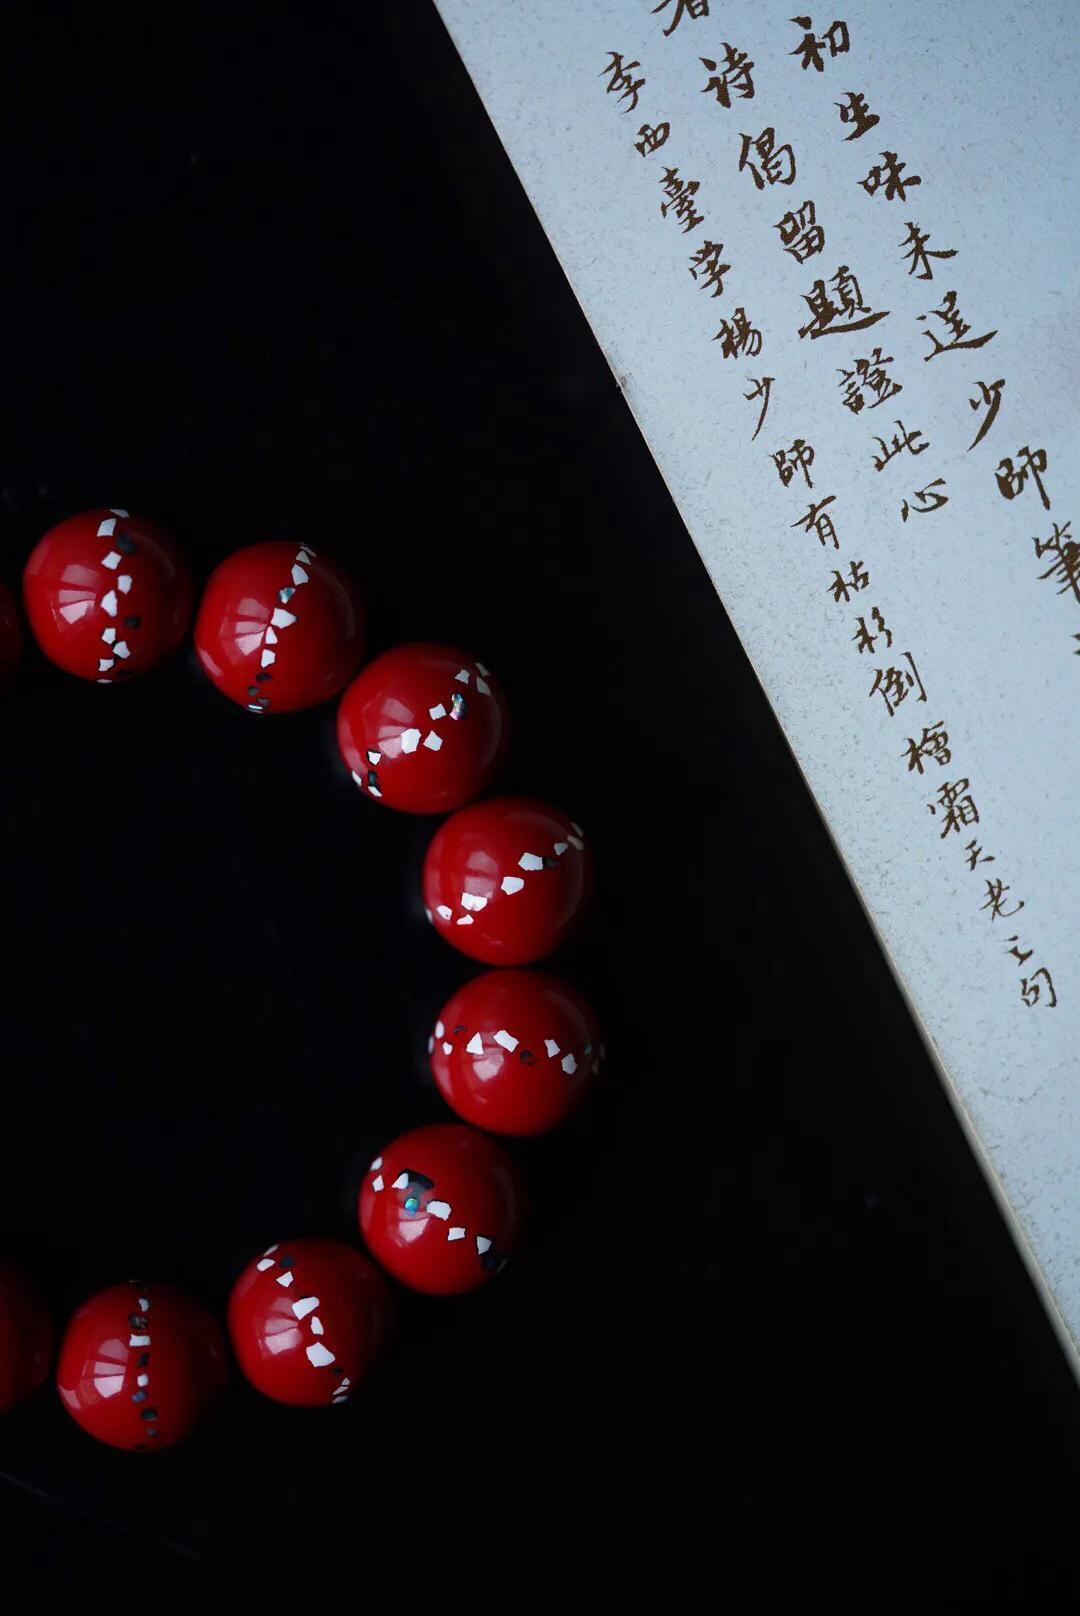 初生味未逞少師筆
詩偈留題證此心
李西臺學楊少師有枯杉倒檜霜天老之句